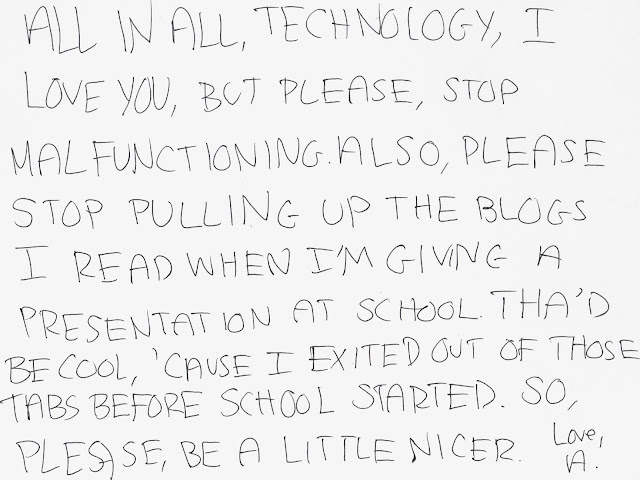 ALL IN ALL, TECHNOLOGY, I
LOVE YOU, BUT PLEASE, STOP
MALFUNCTIONING. ALSO, PLEASE
STOP PULLING UP THE BLOGS
I READ WHEN I'M GIVING A
PRESENTATION AT SCHOOL. THA'D
BE COOL, 'CAUSE I EXITED OUT OF THOSE
TABS BEFORE SCHOOL STARTED. SO,
PLEASE, BE A LITTLE NICER. Love,
A.